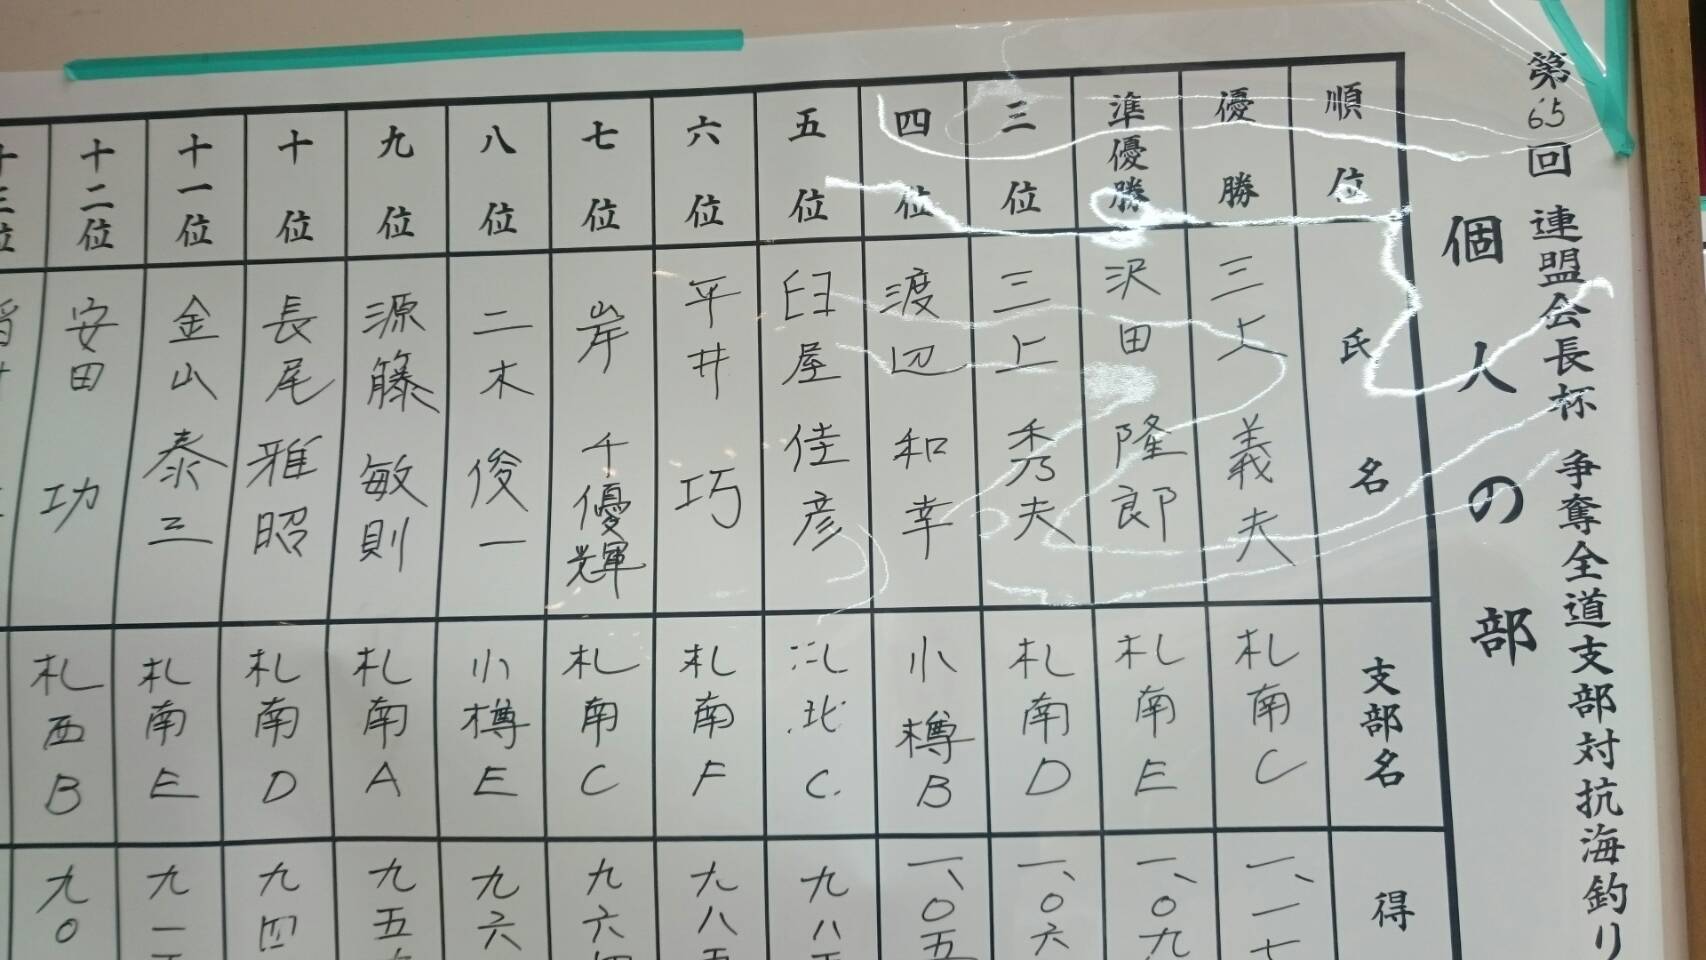 第65回 連盟会長杯 争奪全道支部対抗海釣り
個人の部
順位 氏名 支部名 得
優勝 三上 義夫 札南C 一、一七
準優勝 沢田 隆郎 札南E 一、〇九
三位 三上 秀夫 札南D 一、〇六
四位 渡辺 和幸 小樽B 一、〇五
五位 臼屋 佳彦 札北C 九八
六位 平井 巧 札南F 九八五
七位 岸 千優輝 札南C 九六四
八位 二木 俊一 小樽E 九六
九位 源籐 敏則 札南A 九五
十位 長尾 雅昭 札南D 九四
十一位 金山 泰三 札南E 九一
十二位 安田 功 札西B 九〇
十三位